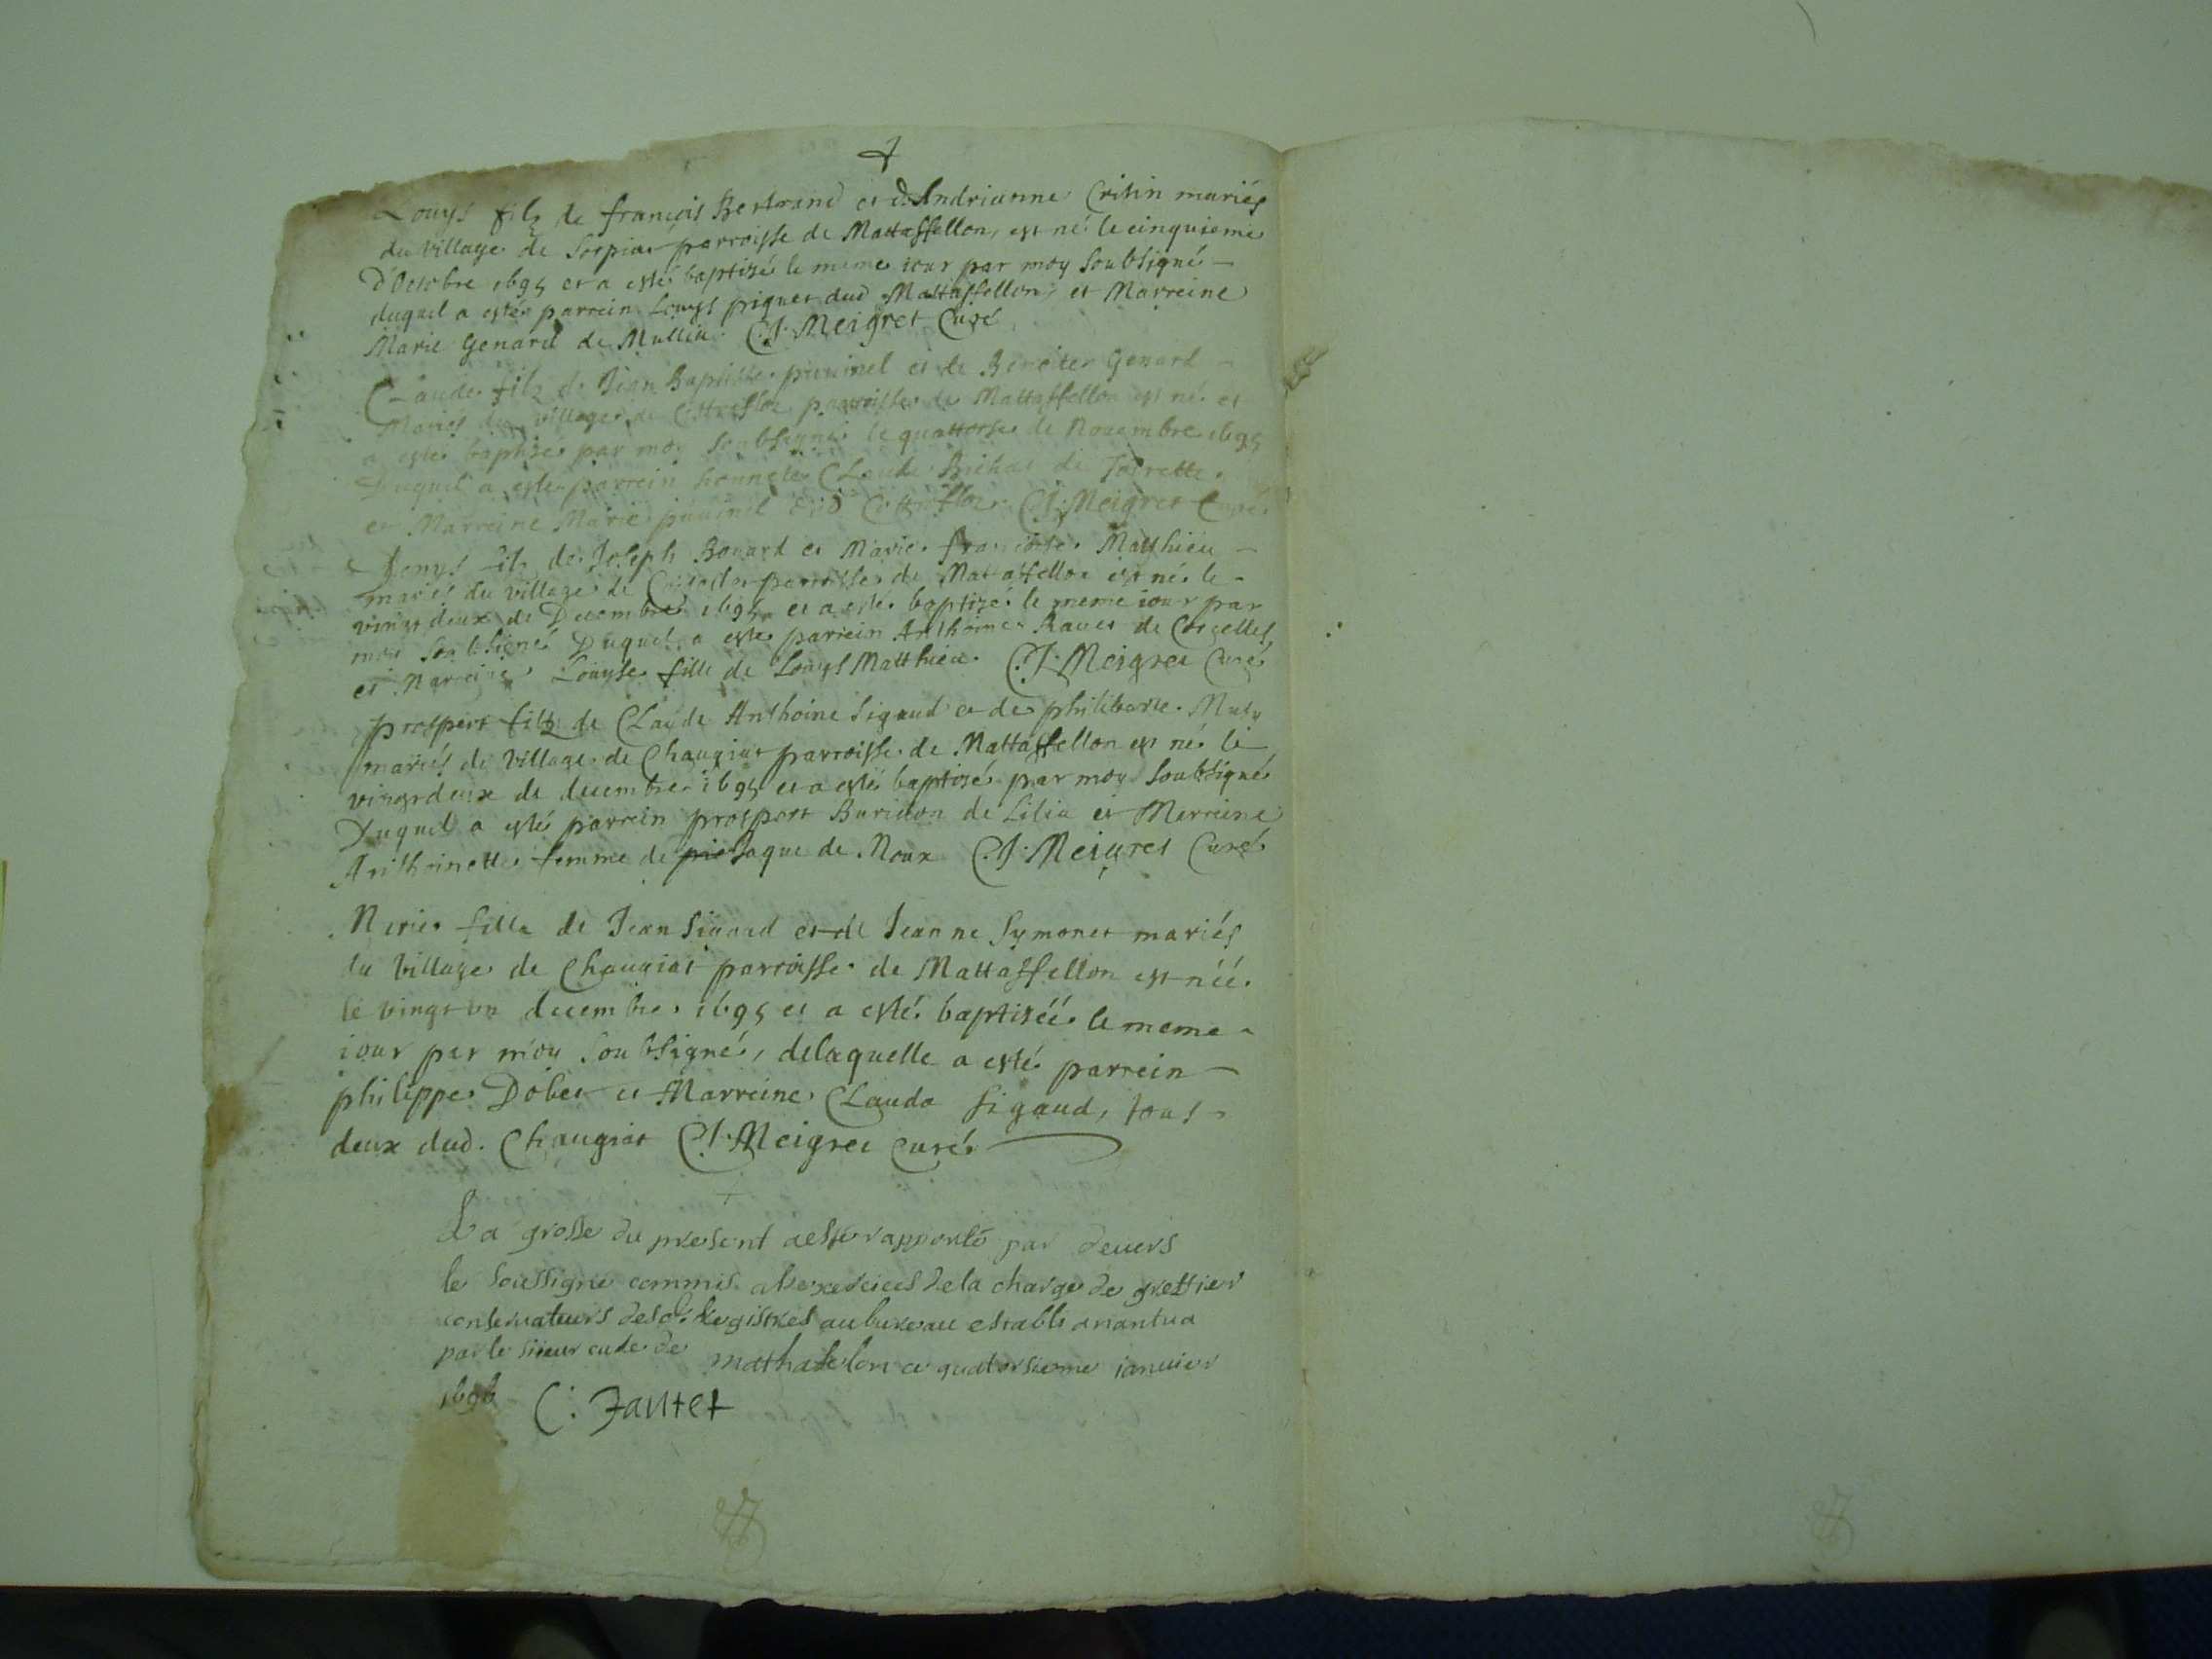 Louys filz de françois Bertrand et d'Andrianne Critin mariés
du village de Sorpiat parroisse de Mattaffellon, est né le cinquieme
D'Octobre 1695 et a esté baptizé le meme iour par moy soubsigné
duquel a esté parrein Louys piquet dud Mattaffellon, et Marreine
Marie Genard de Mullia. C.J. Meigret Curé
Claude filz de Jean Baptiste et de Genard
Mariés du village de parroisse de Mattaffellon est né et
a esté baptisé par moy soubsigné le quattorse de Nouembre 1695
Duquel a esté parrein honneste Claude de
et Marreine Marie dud C.J. Meigret Curé
filz de Joseph Bouard et Marie françoise Matthieu
mariés du village de parroisse de Mattaffellon est né le
vingt deux de Decembre 1695 et a esté baptizé le meme iour par
moy soubsigné Duquel a esté parrein Anthoine Rauet de Corcelles
et Marreine Louyse fille de Louys Matthieu. C.J. Meigret Curé
prospert filz de Claude Anthoine Sigaud et de philiberte
mariés du village de Chaugiat parroisse de Mattaffellon est né le
vingt deux de decembre 1695 et a esté baptizé par moy soubsigné
Duquel a esté parrein prospert Buridon de Lilia et Merreine
Anthoinette femme de Jaque de Noux C.J. Meigret Curé
Marie fille de Jean Sigaud et de Jeanne Symonet mariés
du village de Chaugiat parroisse de Mattaffellon est néé
le vingt vn decembre 1695 et a esté baptizéé le meme
iour par moy soubsigné, delaquelle a esté parrein
philippe Dobet et Marreine Clauda Sigaud, tous
deux dud. Chaugiat C.J. Meigret Curé
La grosse du present aesté rapporté par deuers
le soussigné commis a lexercices dela charge de greffier
conseruateurs desd. Registres au bureau establi anantua
par le sieur curé de mathafelon ce quatorsieme ianuier
1696 C: Jantet